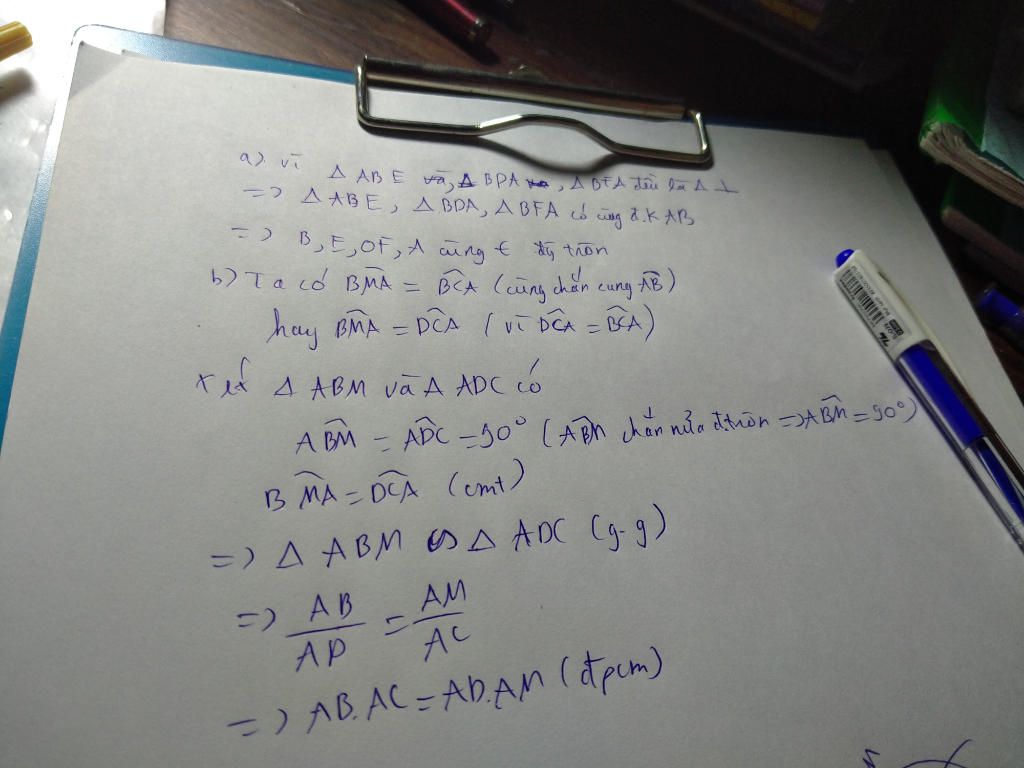 a) vì △ ABE và, △ BDA và, △ BFA đều là △ ⊥
=> △ ABE, △ BDA, △ BFA có cùng đ.K AB
=> B, E, OF, A cùng € đg tròn
b) Ta có BM̂A = BĈA (cùng chắn cung AB)
hay BM̂A = DĈA (vì DĈA = BĈA)
xét △ ABM và △ ADC có
AB̂M = AD̂C = 90° (AB̂M chắn nửa đ.tròn => AB̂M = 90°)
BM̂A = DĈA (cmt)
=> △ ABM ∽ △ ADC (g-g)
=> AB/AD = AM/AC
=> AB.AC = AD.AM (đpcm)